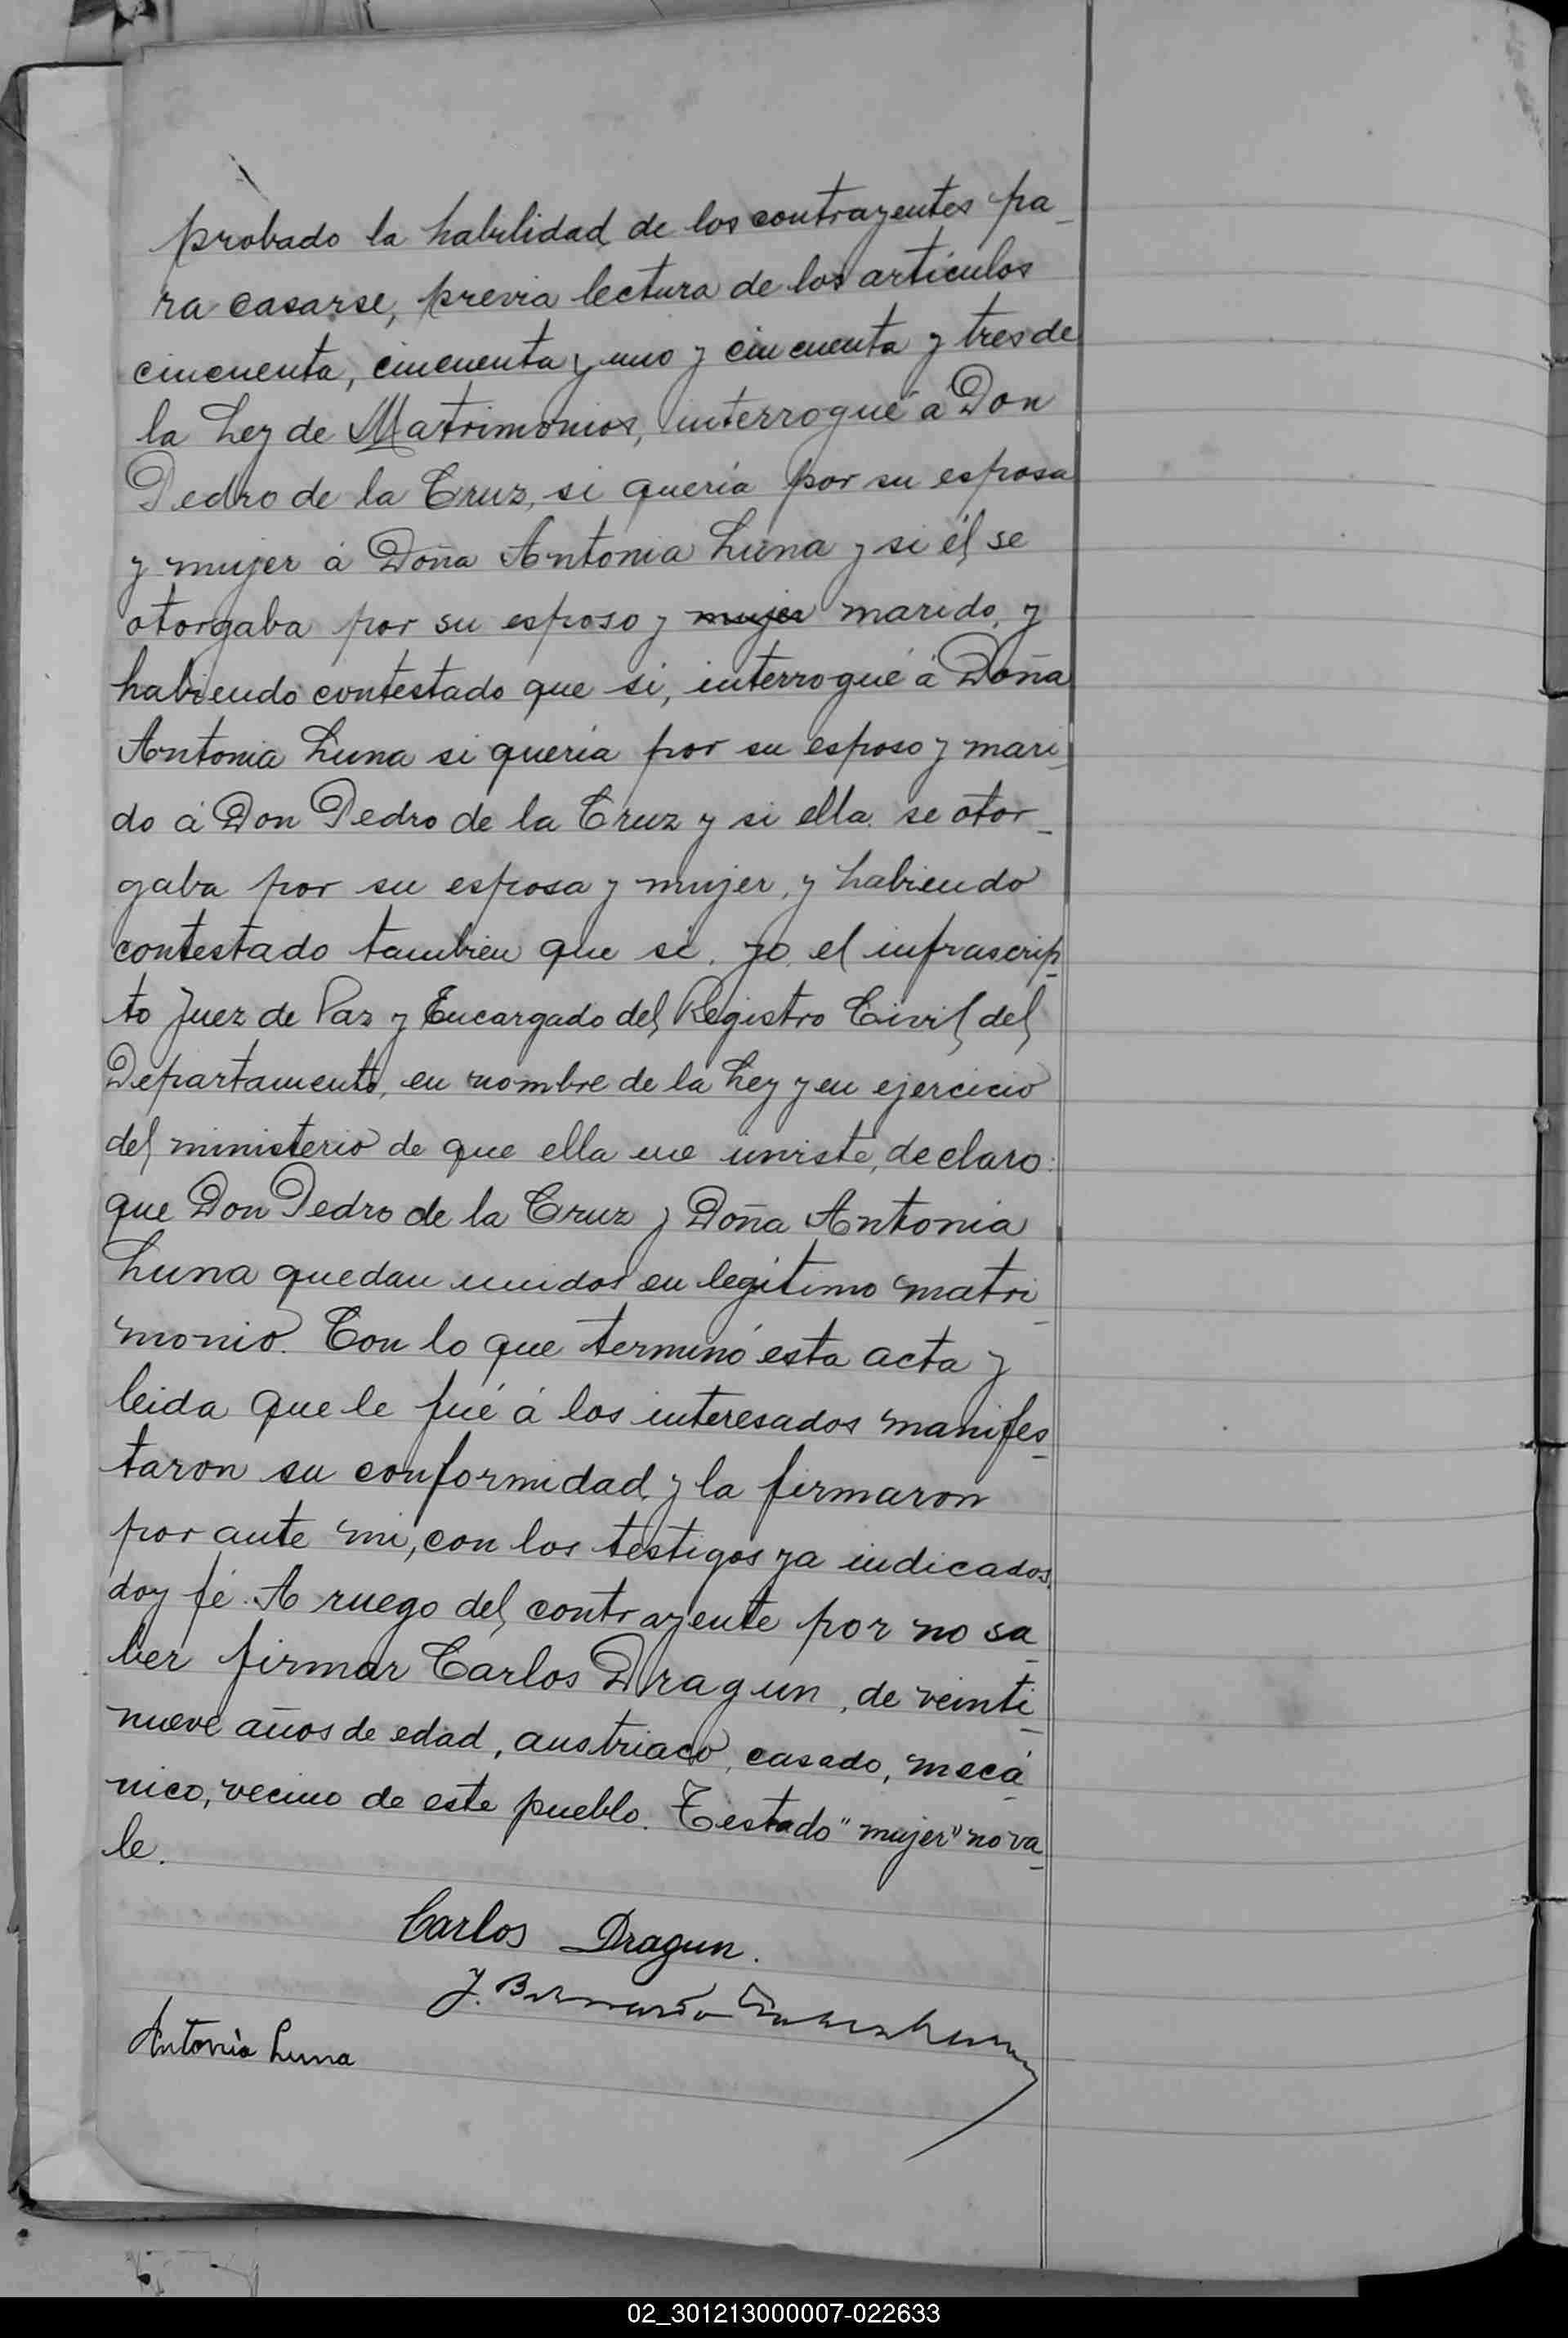 probado la habilidad de los contrayentes pa_
ra casarse, previa lectura de los artículos
cincuenta, cincuenta y uno y cincuenta y tres de
la Ley de Matrimonios, interrogué á Don
Pedro de la Cruz, si quería por su esposa
y mujer á Doña Antonia Luna y si él se
otorgaba por su esposo y mujer marido, y
habiendo contestado que si, interrogué á Doña
Antonia Luna si quería por su esposo y mari_
do á Don Pedro de la Cruz y si ella se otor_
gaba por su esposa y mujer, y habiendo
contestado tambien que si, yo, el infrascrip_
to Juez de Paz y Encargado del Registro Civil del
Departamento, en nombre de la Ley y en ejercicio
del ministerio de que ella me inviste, declaro:
que Don Pedro de la Cruz y Doña Antonia
Luna quedan unidos en legítimo matri_
monio. Con lo que terminó esta acta y
leida que le fué á los interesados manifes_
taron su conformidad y la firmaron
por ante mi, con los testigos ya indicados,
doy fé. A ruego del contrayente por no sa_
ber firmar Carlos Dragun, de veinti_
nueve años de edad, austriaco, casado, mecá_
nico, vecino de este pueblo. Testado "mujer" no va_
le.
Carlos Dragun.
J. Bernardo
Antonia Luna
02_301213000007-022633